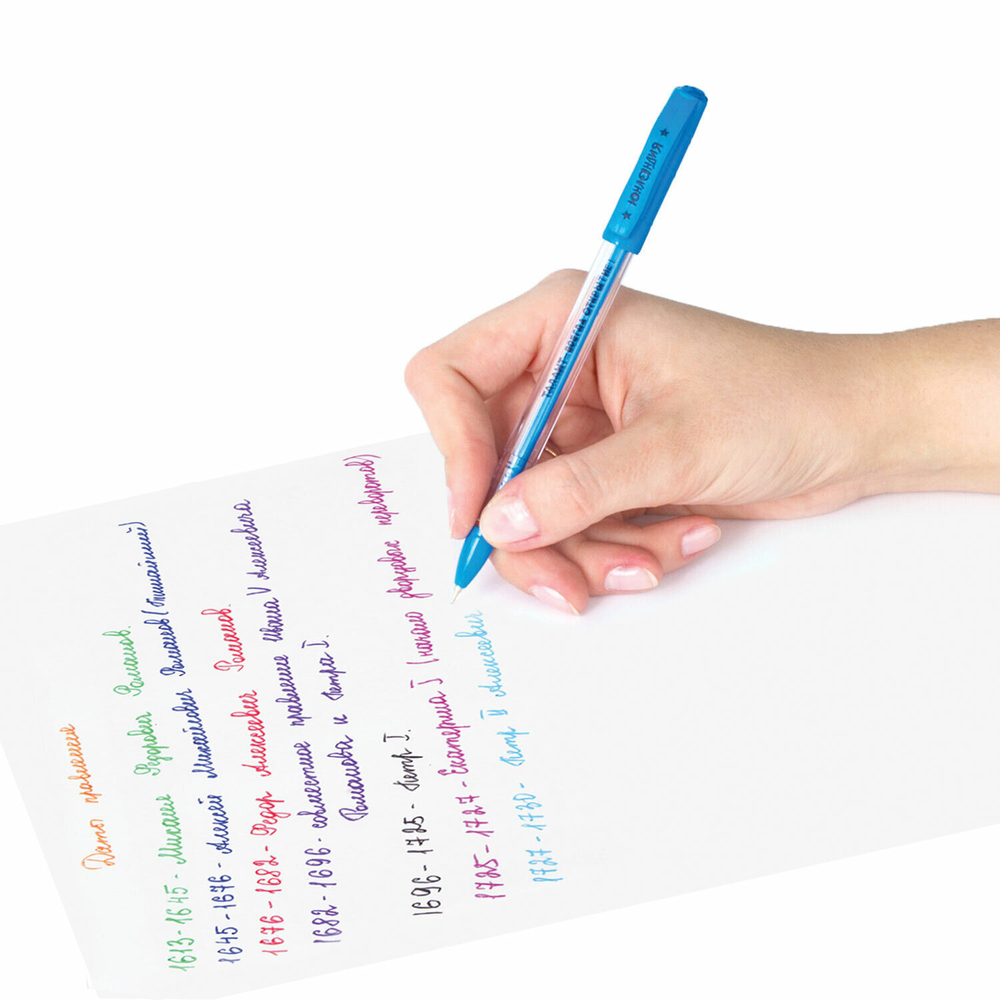 Даты правления
1613-1645- Михаил Федорович Романов.
1645-1676- Алексей Михайлович Романов (Тишайший)
1676-1682- Федор Алексеевич Романов.
1682-1696- совместное правление Ивана V Алексеевича
Романова и Петра I.
1696-1725- Петр I.
1725-1727- Екатерина I (начало дворцовых переворотов)
1727-1730- Петр II Алексеевич
★ ЮНЛАНДИЯ ★
ТАЛАНТ ВСЕГДА ОТКРЫТИЕ!